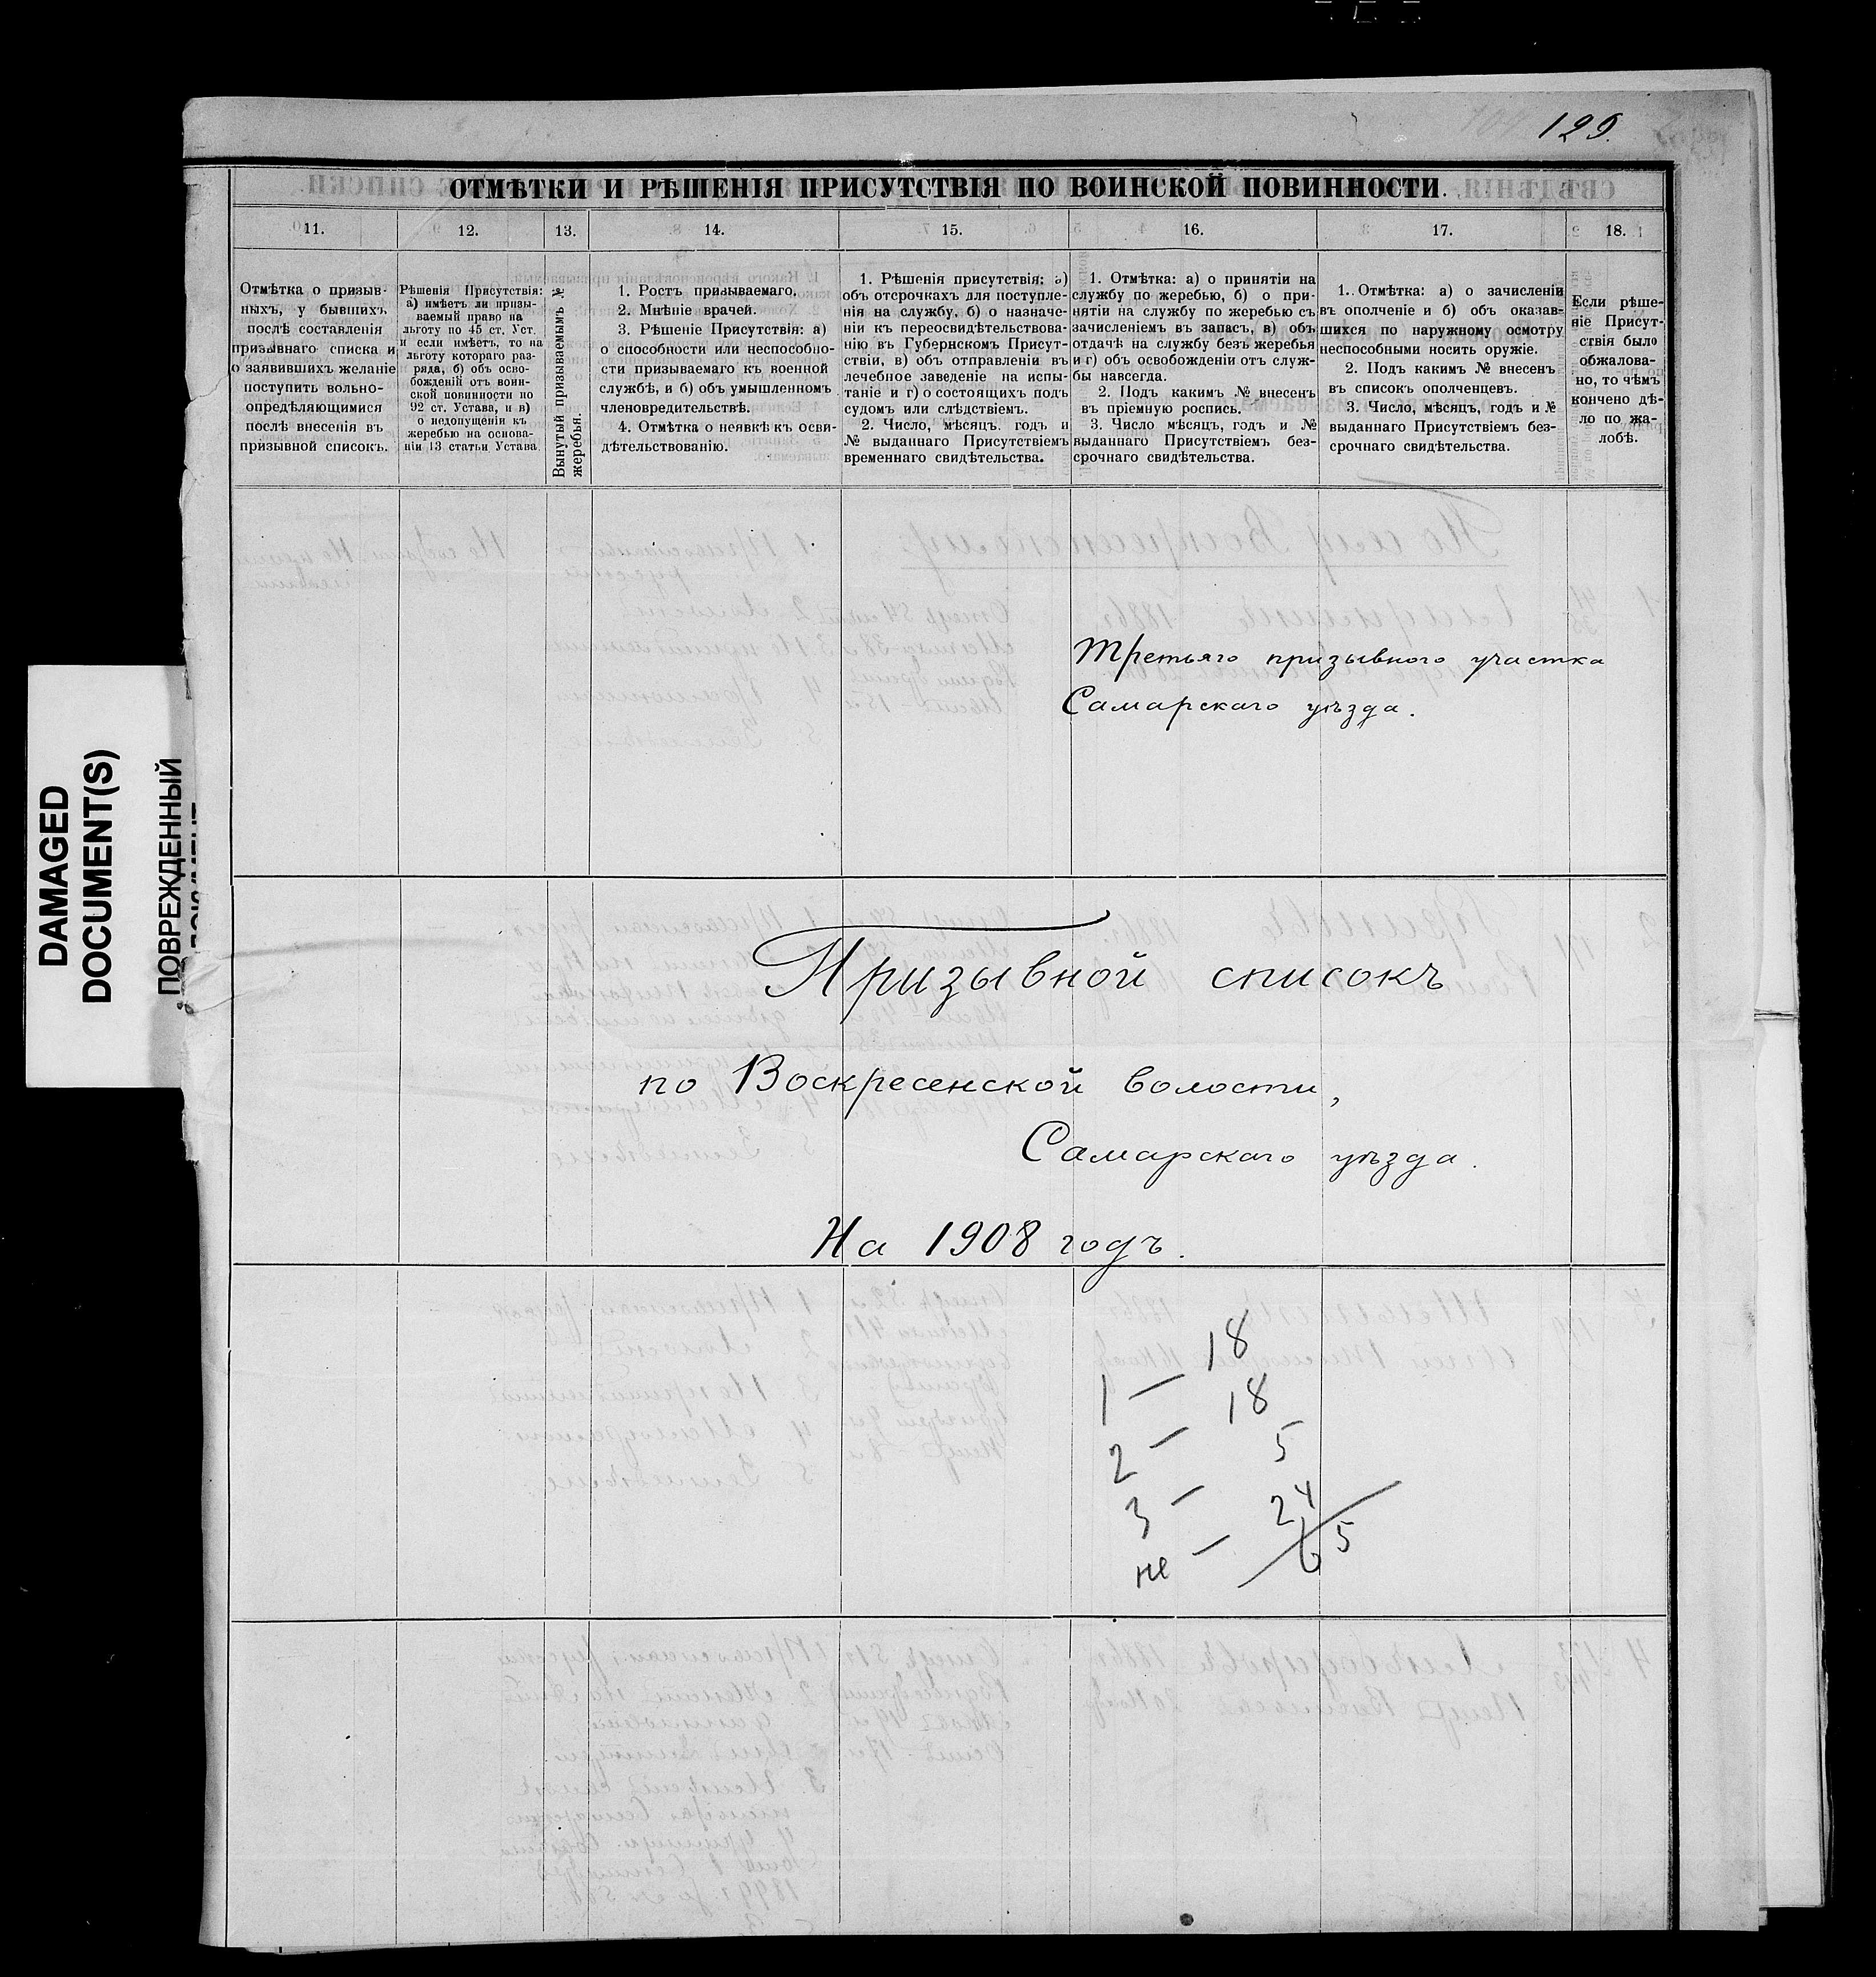 129.
ОТМѢТКИ И РѢШЕНІЯ ПРИСУТСТВІЯ ПО ВОИНСКОЙ ПОВИННОСТИ.
11. 12. 13. 14. 15. 16. 17. 18.
Отмѣтка о призыв-
ныхъ, у бывшихъ
послѣ составленія
призывнаго списка и
о заявившихъ желаніе
поступить вольно-
опредѣляющимися
послѣ внесенія въ
призывной списокъ.
Рѣшенія Присутствія:
а) имѣетъ ли призы-
ваемый право на
льготу по 45 ст. Уст.
и если имѣетъ, то на
льготу котораго раз-
ряда, б) объ осво-
божденіи отъ воин-
ской повинности по
92 ст. Устава, и в)
о недопущеніи къ
жеребью на основа-
ніи 13 статьи Устава
Вынутый призываемымъ №
жеребья.
1. Ростъ призываемаго.
2. Мнѣніе врачей.
3. Рѣшеніе Присутствія: а)
о способности или неспособно-
сти призываемаго къ военной
службѣ, и б) объ умышленномъ
членовредительствѣ.
4. Отмѣтка о неявкѣ къ осви-
дѣтельствованію.
1. Рѣшенія присутствія: а)
объ отсрочкахъ для поступле-
нія на службу, б) о назначе-
ніи къ переосвидѣтельствова-
нію въ Губернскомъ Присут-
ствіи, в) объ отправленіи въ
лечебное заведеніе на испы-
таніе и г) о состоящихъ подъ
судомъ или слѣдствіемъ.
2. Число, мѣсяцъ, годъ и
№ выданнаго Присутствіемъ
временнаго свидѣтельства.
1. Отмѣтка: а) о принятіи на
службу по жеребью, б) о при-
нятіи на службу по жеребью съ
зачисленіемъ въ запасъ, в) объ
отдачѣ на службу безъ жеребья
и г) объ освобожденіи отъ служ-
бы навсегда.
2. Подъ какимъ № внесенъ
въ пріемную роспись.
3. Число мѣсяцъ, годъ и №
выданнаго Присутствіемъ без-
срочнаго свидѣтельства.
1. Отмѣтка: а) о зачисленіи
въ ополченіе и б) объ оказав-
шихся по наружному осмотру
неспособными носить оружіе.
2. Подъ какимъ № внесенъ
въ списокъ ополченцевъ.
3. Число, мѣсяцъ, годъ и №
выданнаго Присутствіемъ без-
срочнаго свидѣтельства.
Если рѣше-
ніе Присут-
ствія было
обжалова-
но, то чѣмъ
кончено дѣ-
ло по жа-
лобѣ.
Третьяго призывного участка
Самарскаго уѣзда.
DAMAGED
DOCUMENT(S)
ПОВРЕЖДЕННЫЙ
Призывной списокъ
по Воскресенской волости,
Самарскаго уѣзда.
На 1908 годъ.
1 — 18
2 — 18
3 — 5
не — 24
65